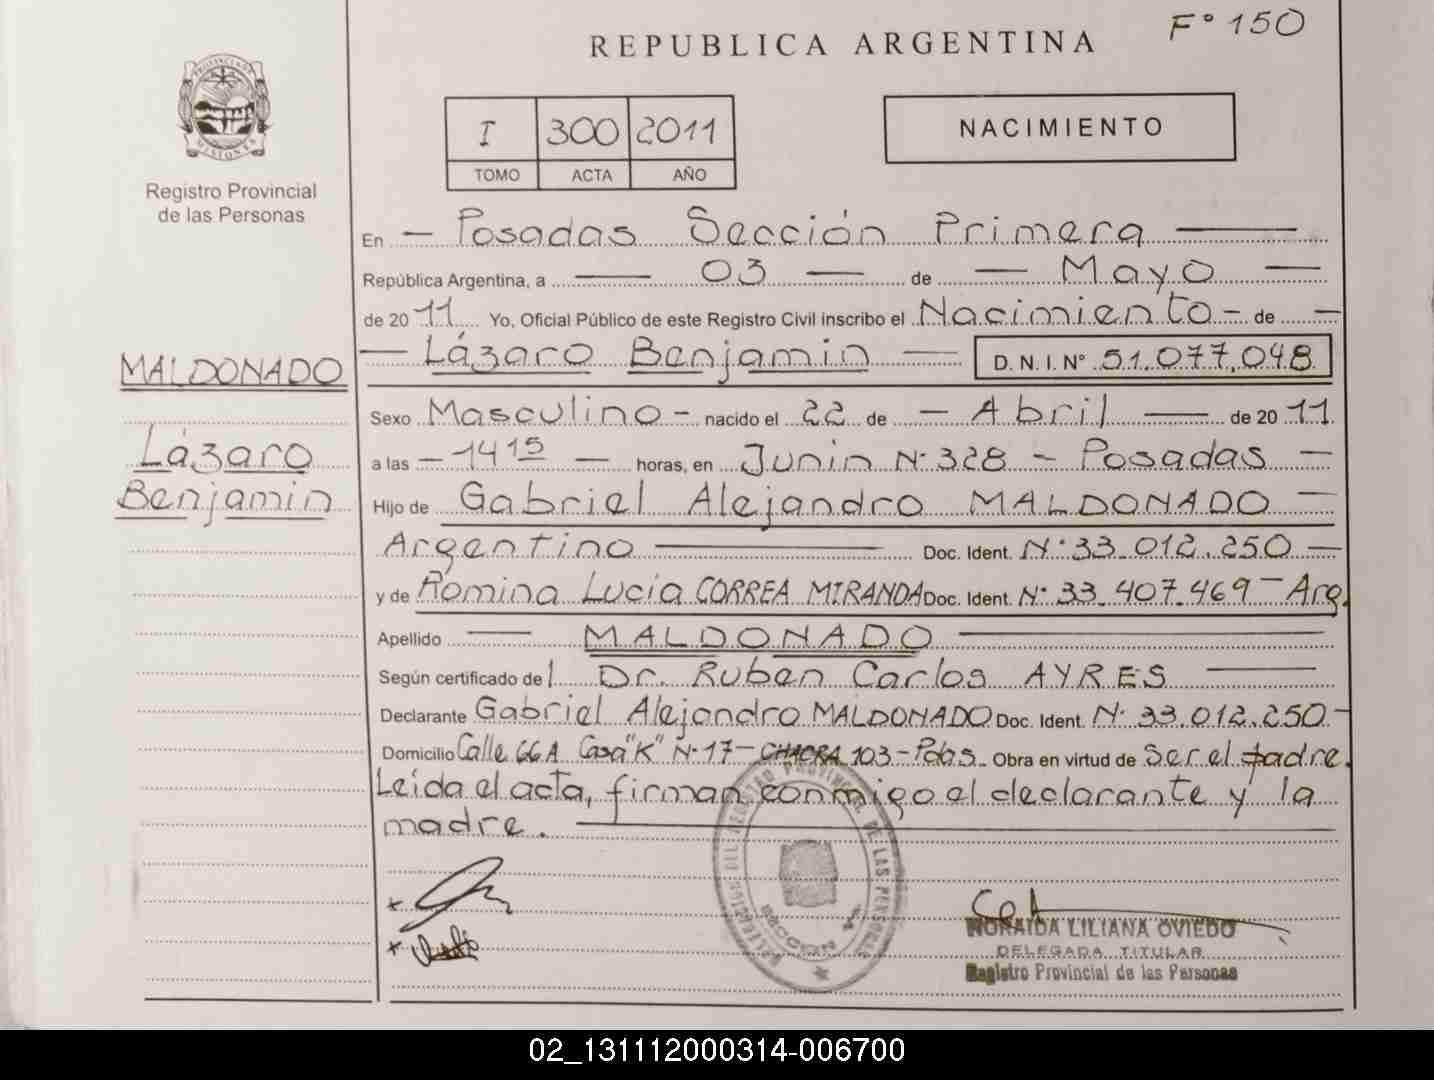 F° 150
REPUBLICA ARGENTINA
PROVINCIA DE
MISIONES
Registro Provincial
de las Personas
I 300 2011
TOMO ACTA AÑO
NACIMIENTO
En Posadas Sección Primera
República Argentina, a 03 de Mayo
de 2011 Yo, Oficial Público de este Registro Civil inscribo el Nacimiento de
Lázaro Benjamin D. N. I. N° 51.077.048
MALDONADO
Lázaro
Benjamin
Sexo Masculino - nacido el 22 de Abril de 2011
a las 14 15 horas, en Junin N° 328 - Posadas
Hijo de Gabriel Alejandro MALDONADO
Argentino Doc. Ident. N° 33.012.250
y de Romina Lucia CORREA MIRANDA Doc. Ident. N° 33.407.469 - Arg.
Apellido MALDONADO
Según certificado del Dr. Ruben Carlos AYRES
Declarante Gabriel Alejandro MALDONADO Doc. Ident. N° 33.012.250
Domicilio Calle 66 A Casa "K" N° 17 - CHACRA 103 - Pdas. Obra en virtud de Ser el padre.
Leída el acta, firman conmigo el declarante y la
madre.
DEL REGISTRO PROVINCIAL DE LAS PERSONAS
SECCION
MORAIDA LILIANA OVIEDO
DELEGADA TITULAR
Registro Provincial de las Personas
02_131112000314-006700